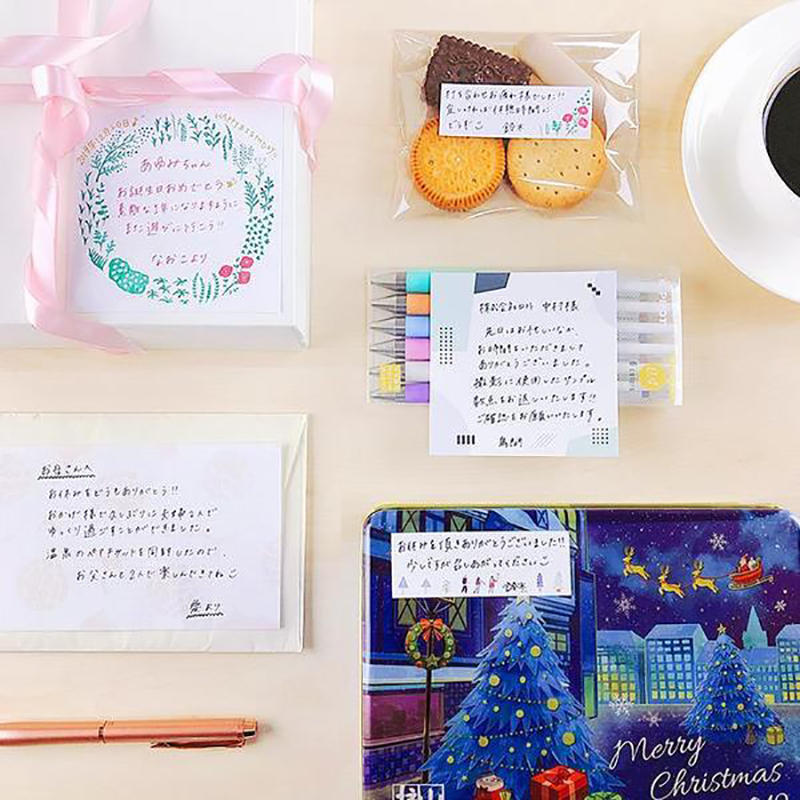 2019年12月20日♪
HAPPY BIRTHDAY!!
あゆみちゃん
お誕生日おめでとう
素敵な1年になりますように
また遊びに行こう!!
なおこより
打ち合わせお疲れ様でした!!
宜しければ休憩時間に
どうぞ 鈴木
中村様
先日はお忙しいなか、
お時間をいただきまして
ありがとうございました。
撮影に使用したサンプル
数点をお返しいたします!!
ご確認をお願いいたします。
お母さんへ
お休みをどうもありがとう!!
おかげ様で久しぶりに夫婦2人で
ゆっくり過ごすことができました。
温泉のペアチケットを同封したので、
お父さんと2人で楽しんできてね
愛より
お休みを頂きありがとうございました!!
少しですが召しあがってください
鈴木
Merry
Christmas